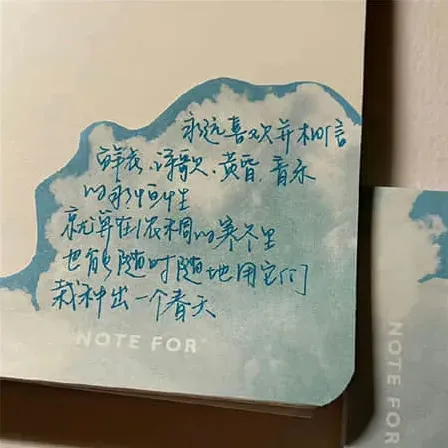 永远喜欢并相信
鲜花、诗歌、黄昏、音乐
的永恒性
就算在浓稠的寒冬里
也能随时随地用它们
栽种出一个春天
NOTE FOR
NOTE FOR